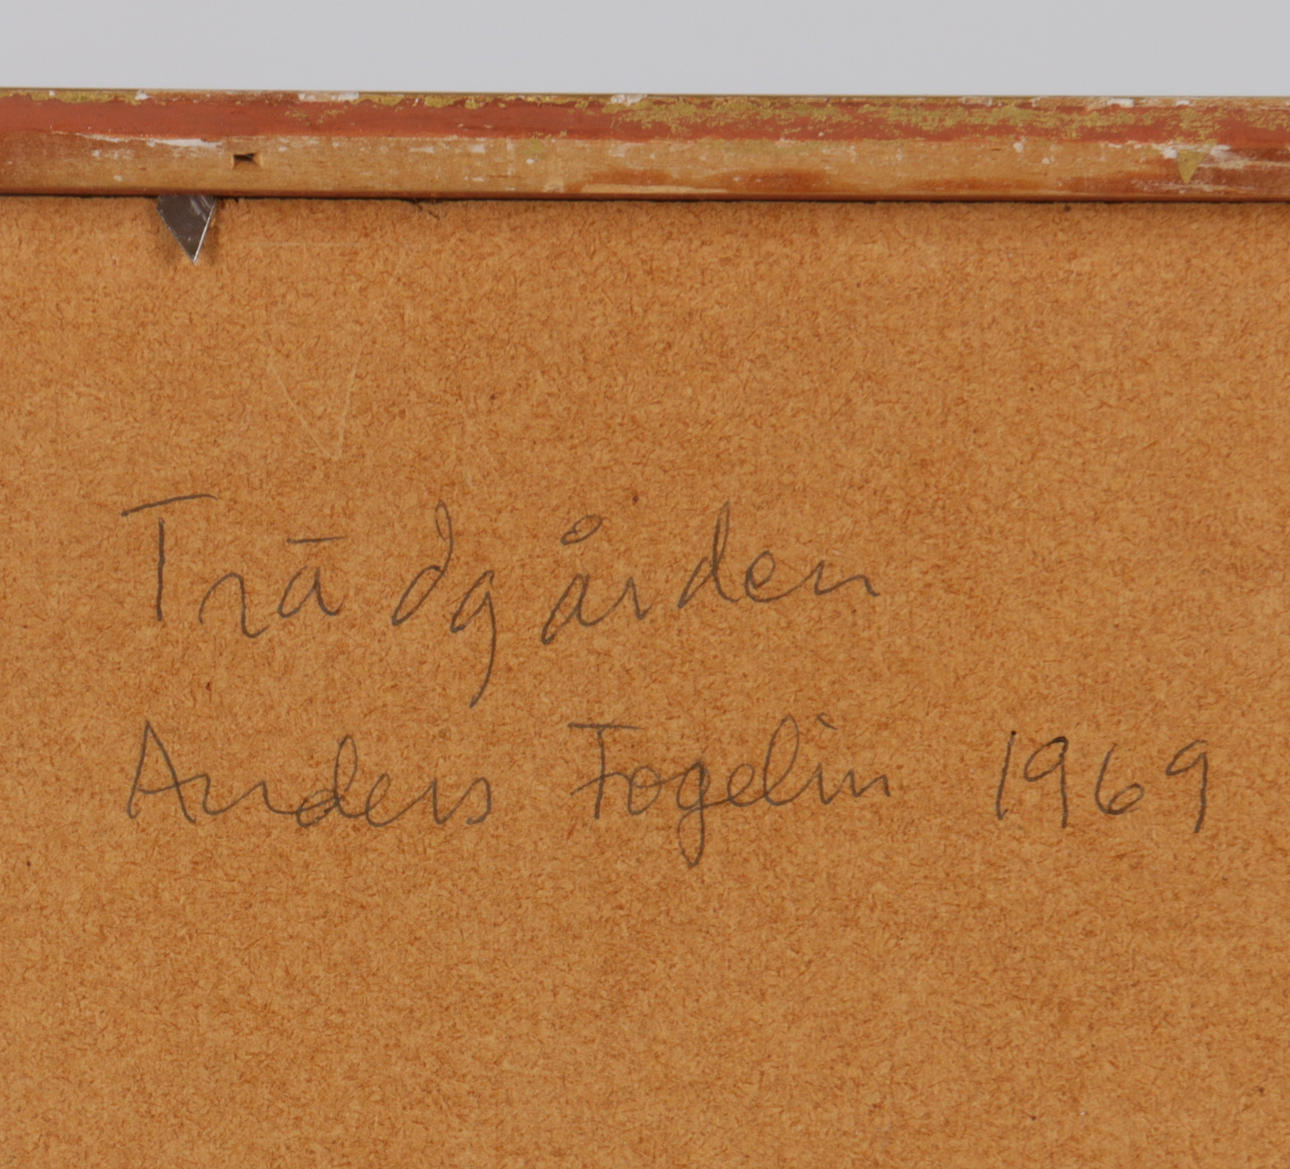 Trädgården
Anders Fogelin 1969